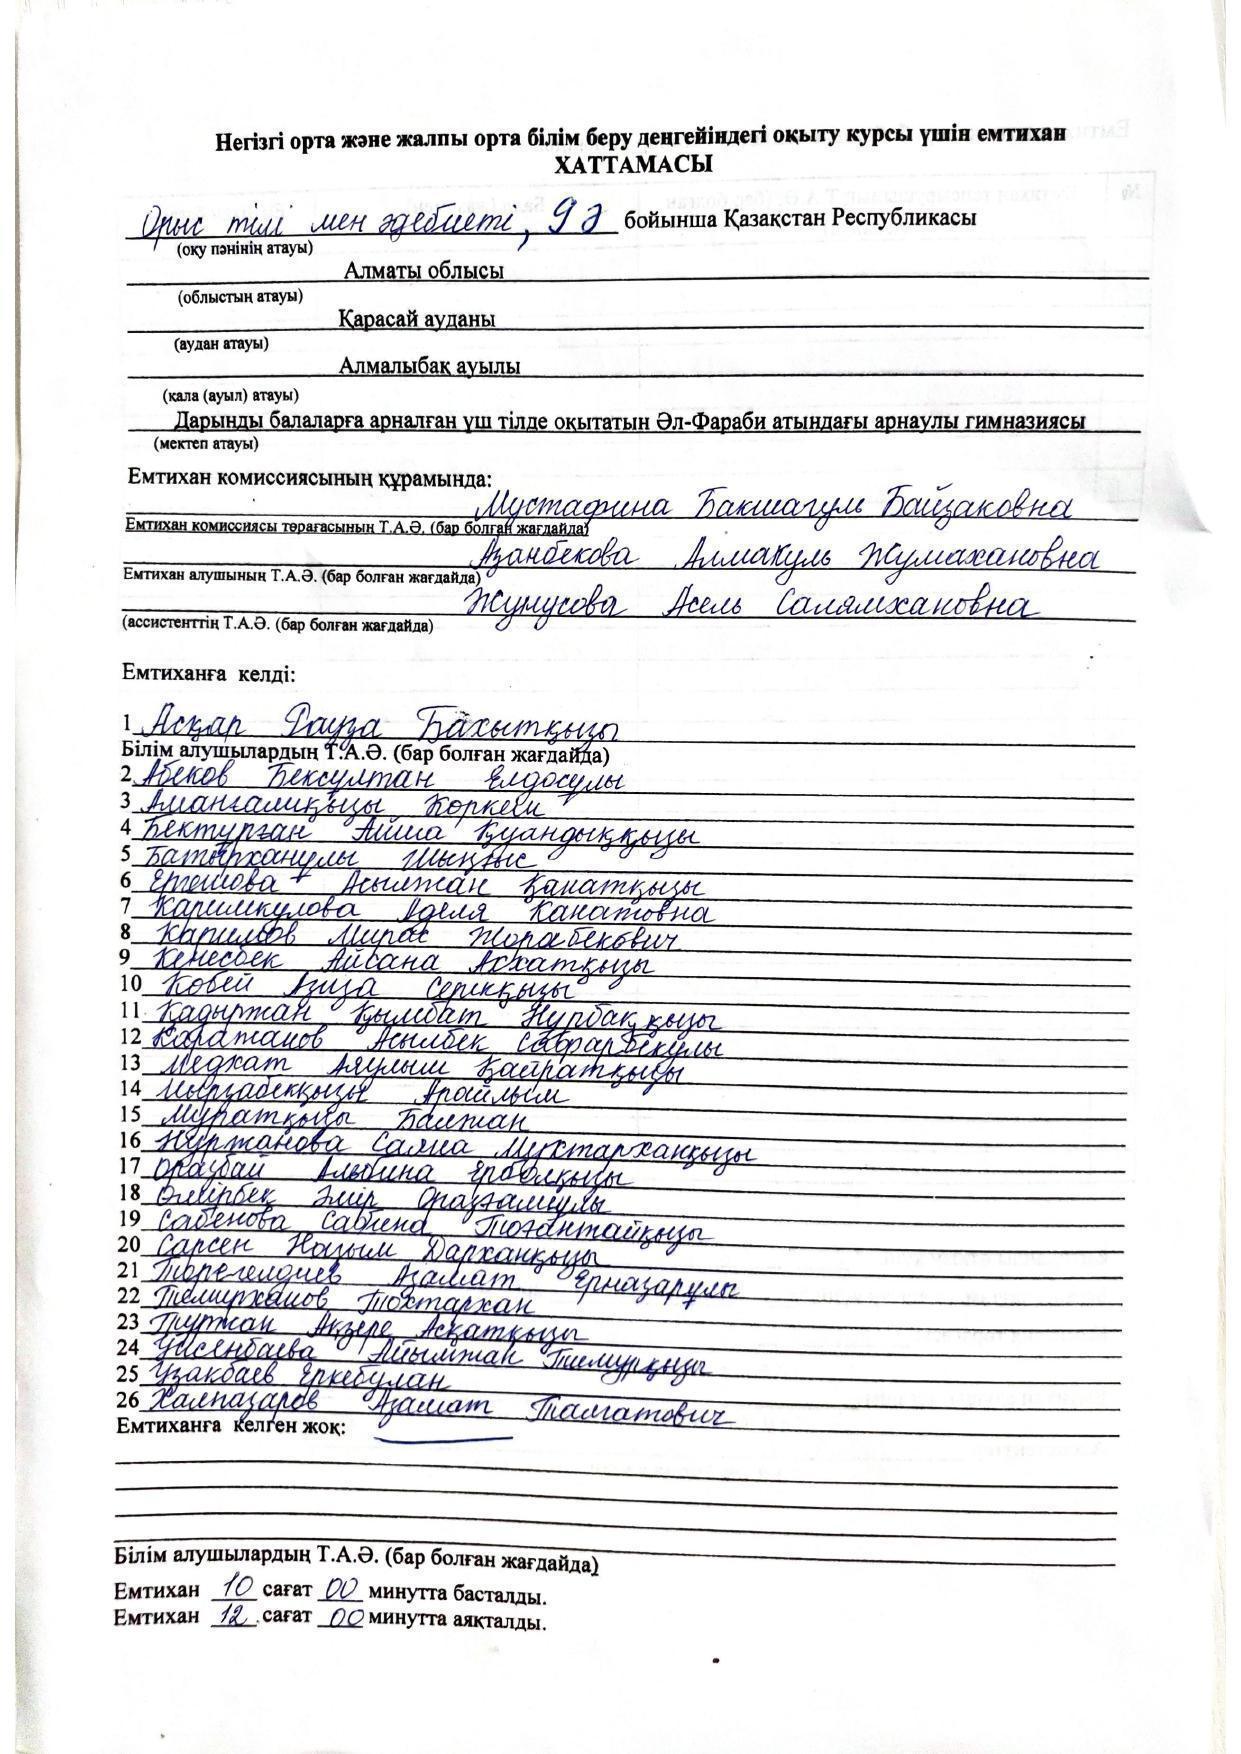 Негізгі орта және жалпы орта білім беру деңгейіндегі оқыту курсы үшін емтихан
ХАТТАМАСЫ
Орыс тілі мен әдебиеті, 9ә бойынша Қазақстан Республикасы
(оқу пәнінің атауы)
Алматы облысы
(облыстың атауы)
Қарасай ауданы
(аудан атауы)
Алмалыбақ ауылы
(қала (ауыл) атауы)
Дарынды балаларға арналған үш тілде оқытатын Әл-Фараби атындағы арнаулы гимназиясы
(мектеп атауы)
Емтихан комиссиясының құрамында:
Мустафина Бакшагуль Байзаковна
Емтихан комиссиясы төрағасының Т.А.Ә. (бар болған жағдайда)
Азанбекова Алмакуль Жумахановна
Емтихан алушының Т.А.Ә. (бар болған жағдайда)
Жунусова Асель Салямхановна
(ассистенттің Т.А.Ә. (бар болған жағдайда)
Емтиханға келді:
1 Асқар Рауза Бахытқызы
Білім алушылардың Т.А.Ә. (бар болған жағдайда)
2 Абеков Бексултан Елдосулы
3 Амангалиқызы Көркем
4 Бектурған Айша Қуандыққызы
5 Батырханулы Шыңғыс
6 Ертешова Асылжан Қанатқызы
7 Каримкулова Аделя Канатовна
8 Каримов Мирас Жорабекович
9 Кеңесбек Айсана Ахатқызы
10 Көбей Азиза Серікқызы
11 Қадыржан Қымбат Нұрбаққызы
12 Қаратанов Асылбек
13 Медхат Аяулым Қайратқызы
14 Мырзабекқызы Арайлым
15 Мұратқызы Балжан
16 Нұржанова Саяна Мұхтарханқызы
17 Оразбай Альбина Ерболқызы
18 Өмірбек Әмір
19 Сабенова Сабина Тоғантайқызы
20 Сарсен Назым Дарханқызы
21 Төрегелдиев Азамат Ерназарұлы
22 Темирханов Тохтархан
23 Тұржан Ақзере Асқатқызы
24 Үйсенбаева Айымжан Темурқызы
25 Узакбаев Еркебулан
26 Халназаров Азамат Талгатович
Емтиханға келген жоқ:
Білім алушылардың Т.А.Ә. (бар болған жағдайда)
Емтихан 10 сағат 00 минутта басталды.
Емтихан 12 сағат 00 минутта аяқталды.